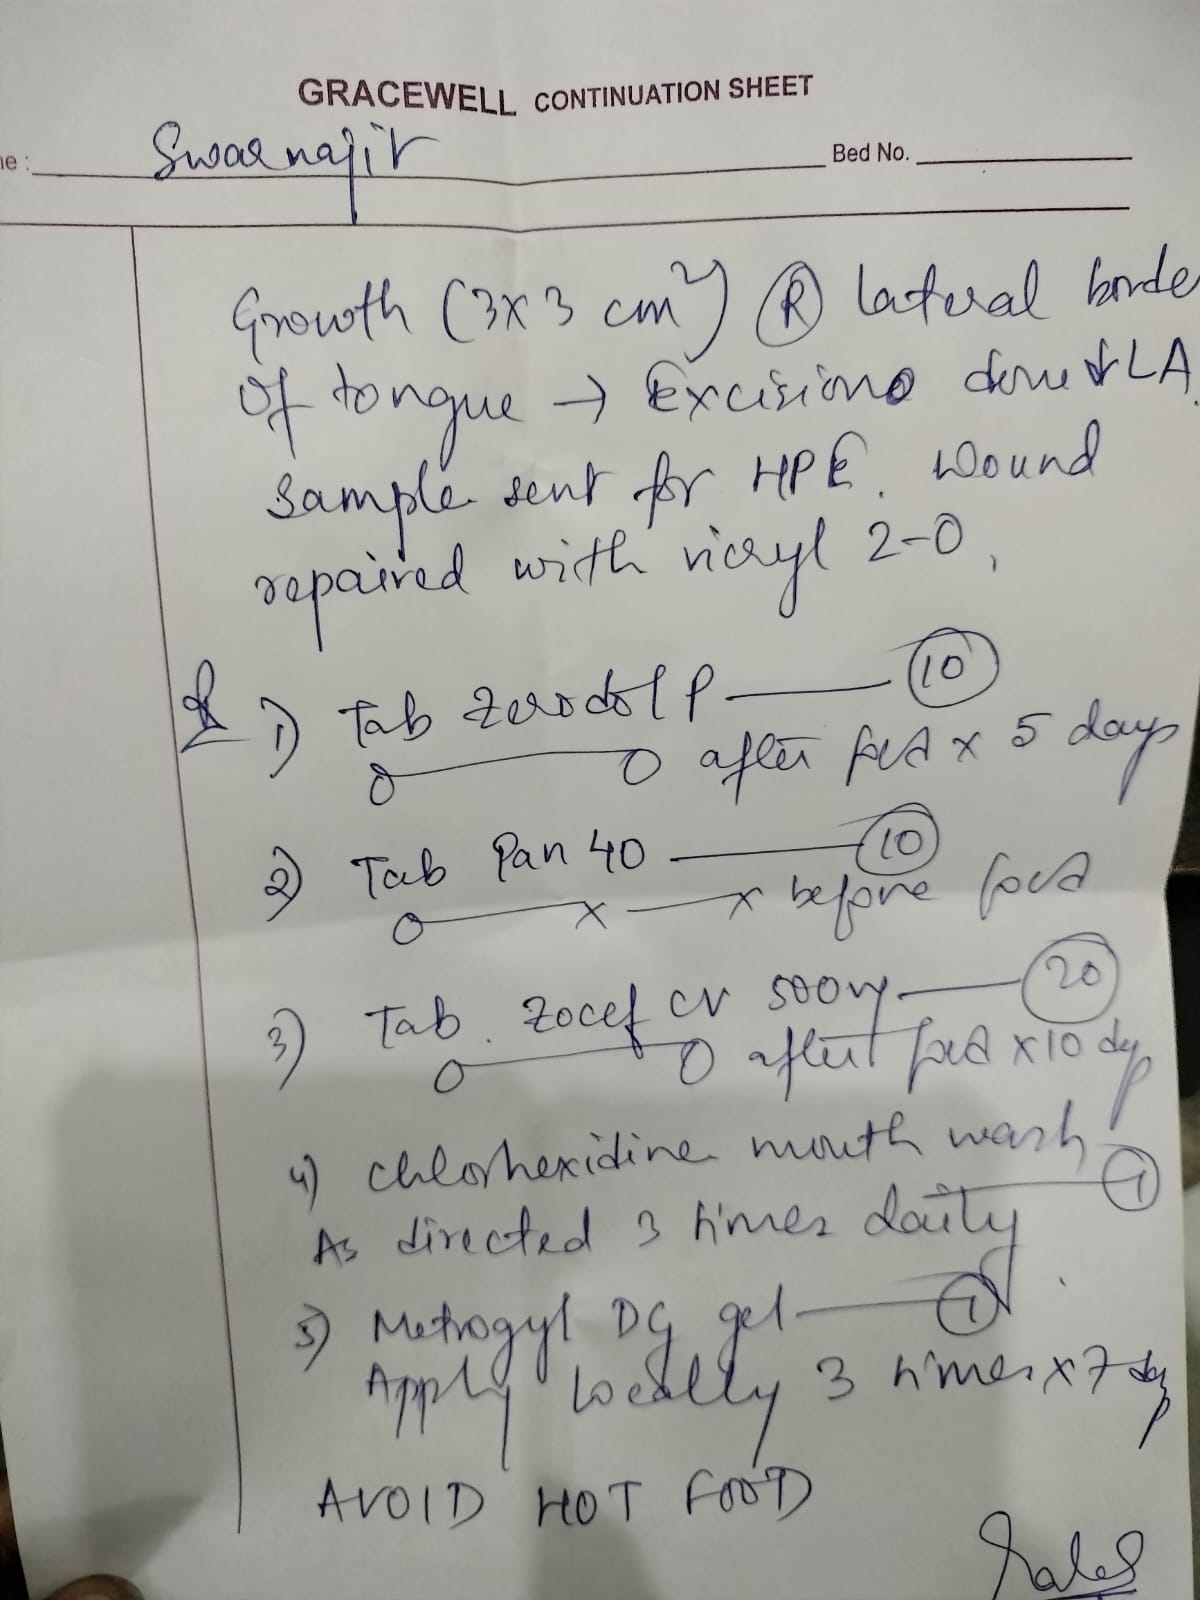 GRACEWELL CONTINUATION SHEET
ne : Swarnajit Bed No.
Growth (3x3 cm²) Ⓡ lateral borde
of tongue → Excision done LA.
Sample sent for HPE. Wound
repaired with vicryl 2-0,
1) Tab Zerodol P — 10
0 — 0 after food x 5 days
2) Tab Pan 40 — 10
0 — x — x before food
3) Tab. Zocef CV 500mg — 20
0 — 0 after food x 10 dys
4) Chlorhexidine mouth wash — 1
As directed 3 times daily
5) Metrogyl DG gel — 1
Apply locally 3 times x 7 dys
AVOID HOT FOOD